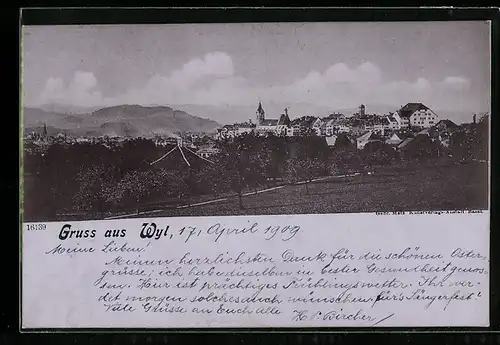 Gebr. Metz Kunstverlags-Anstalt Basel.
16139
Gruss aus Wyl, 17. April 1909
Meine Lieben!
Meinen herzlichsten Dank für die schönen Oster-
grüsse; ich habe dieselben in bester Gesundheit genos-
sen. Hier ist prächtiges Frühlingswetter. Ihr wer-
det morgen solches auch wünschen für's Sängerfest!
Viele Grüsse an Euch alle H. P. Bircher